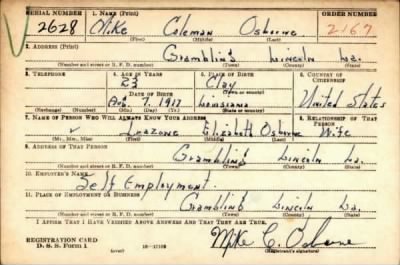 SERIAL NUMBER 1. NAME (Print) ORDER NUMBER
2628 Mike Coleman Osborne 2167
(First) (Middle) (Last)
2. ADDRESS (Print)
Grambling Lincoln La.
(Number and street or R. F. D. number) (Town) (County) (State)
3. TELEPHONE 4. AGE IN YEARS 5. PLACE OF BIRTH 6. COUNTRY OF CITIZENSHIP
23 Clay
DATE OF BIRTH (Town or county)
7, 1917 Louisiana United States
(Exchange) (Number) (Mo.) (Day) (Yr.) (State or country)
7. NAME OF PERSON WHO WILL ALWAYS KNOW YOUR ADDRESS 8. RELATIONSHIP OF THAT PERSON
Elizabeth Osborne Wife
(Mr., Mrs., Miss) (First) (Middle) (Last)
9. ADDRESS OF THAT PERSON
Grambling Lincoln La.
(Number and street or R. F. D. number) (Town) (County) (State)
10. EMPLOYER'S NAME
Self Employment.
11. PLACE OF EMPLOYMENT OR BUSINESS
Grambling Lincoln La.
(Number and street or R. F. D. number) (Town) (County) (State)
I AFFIRM THAT I HAVE VERIFIED ABOVE ANSWERS AND THAT THEY ARE TRUE.
REGISTRATION CARD
D. S. S. Form 1 (over) Mike C. Osborne
(Registrant's signature)